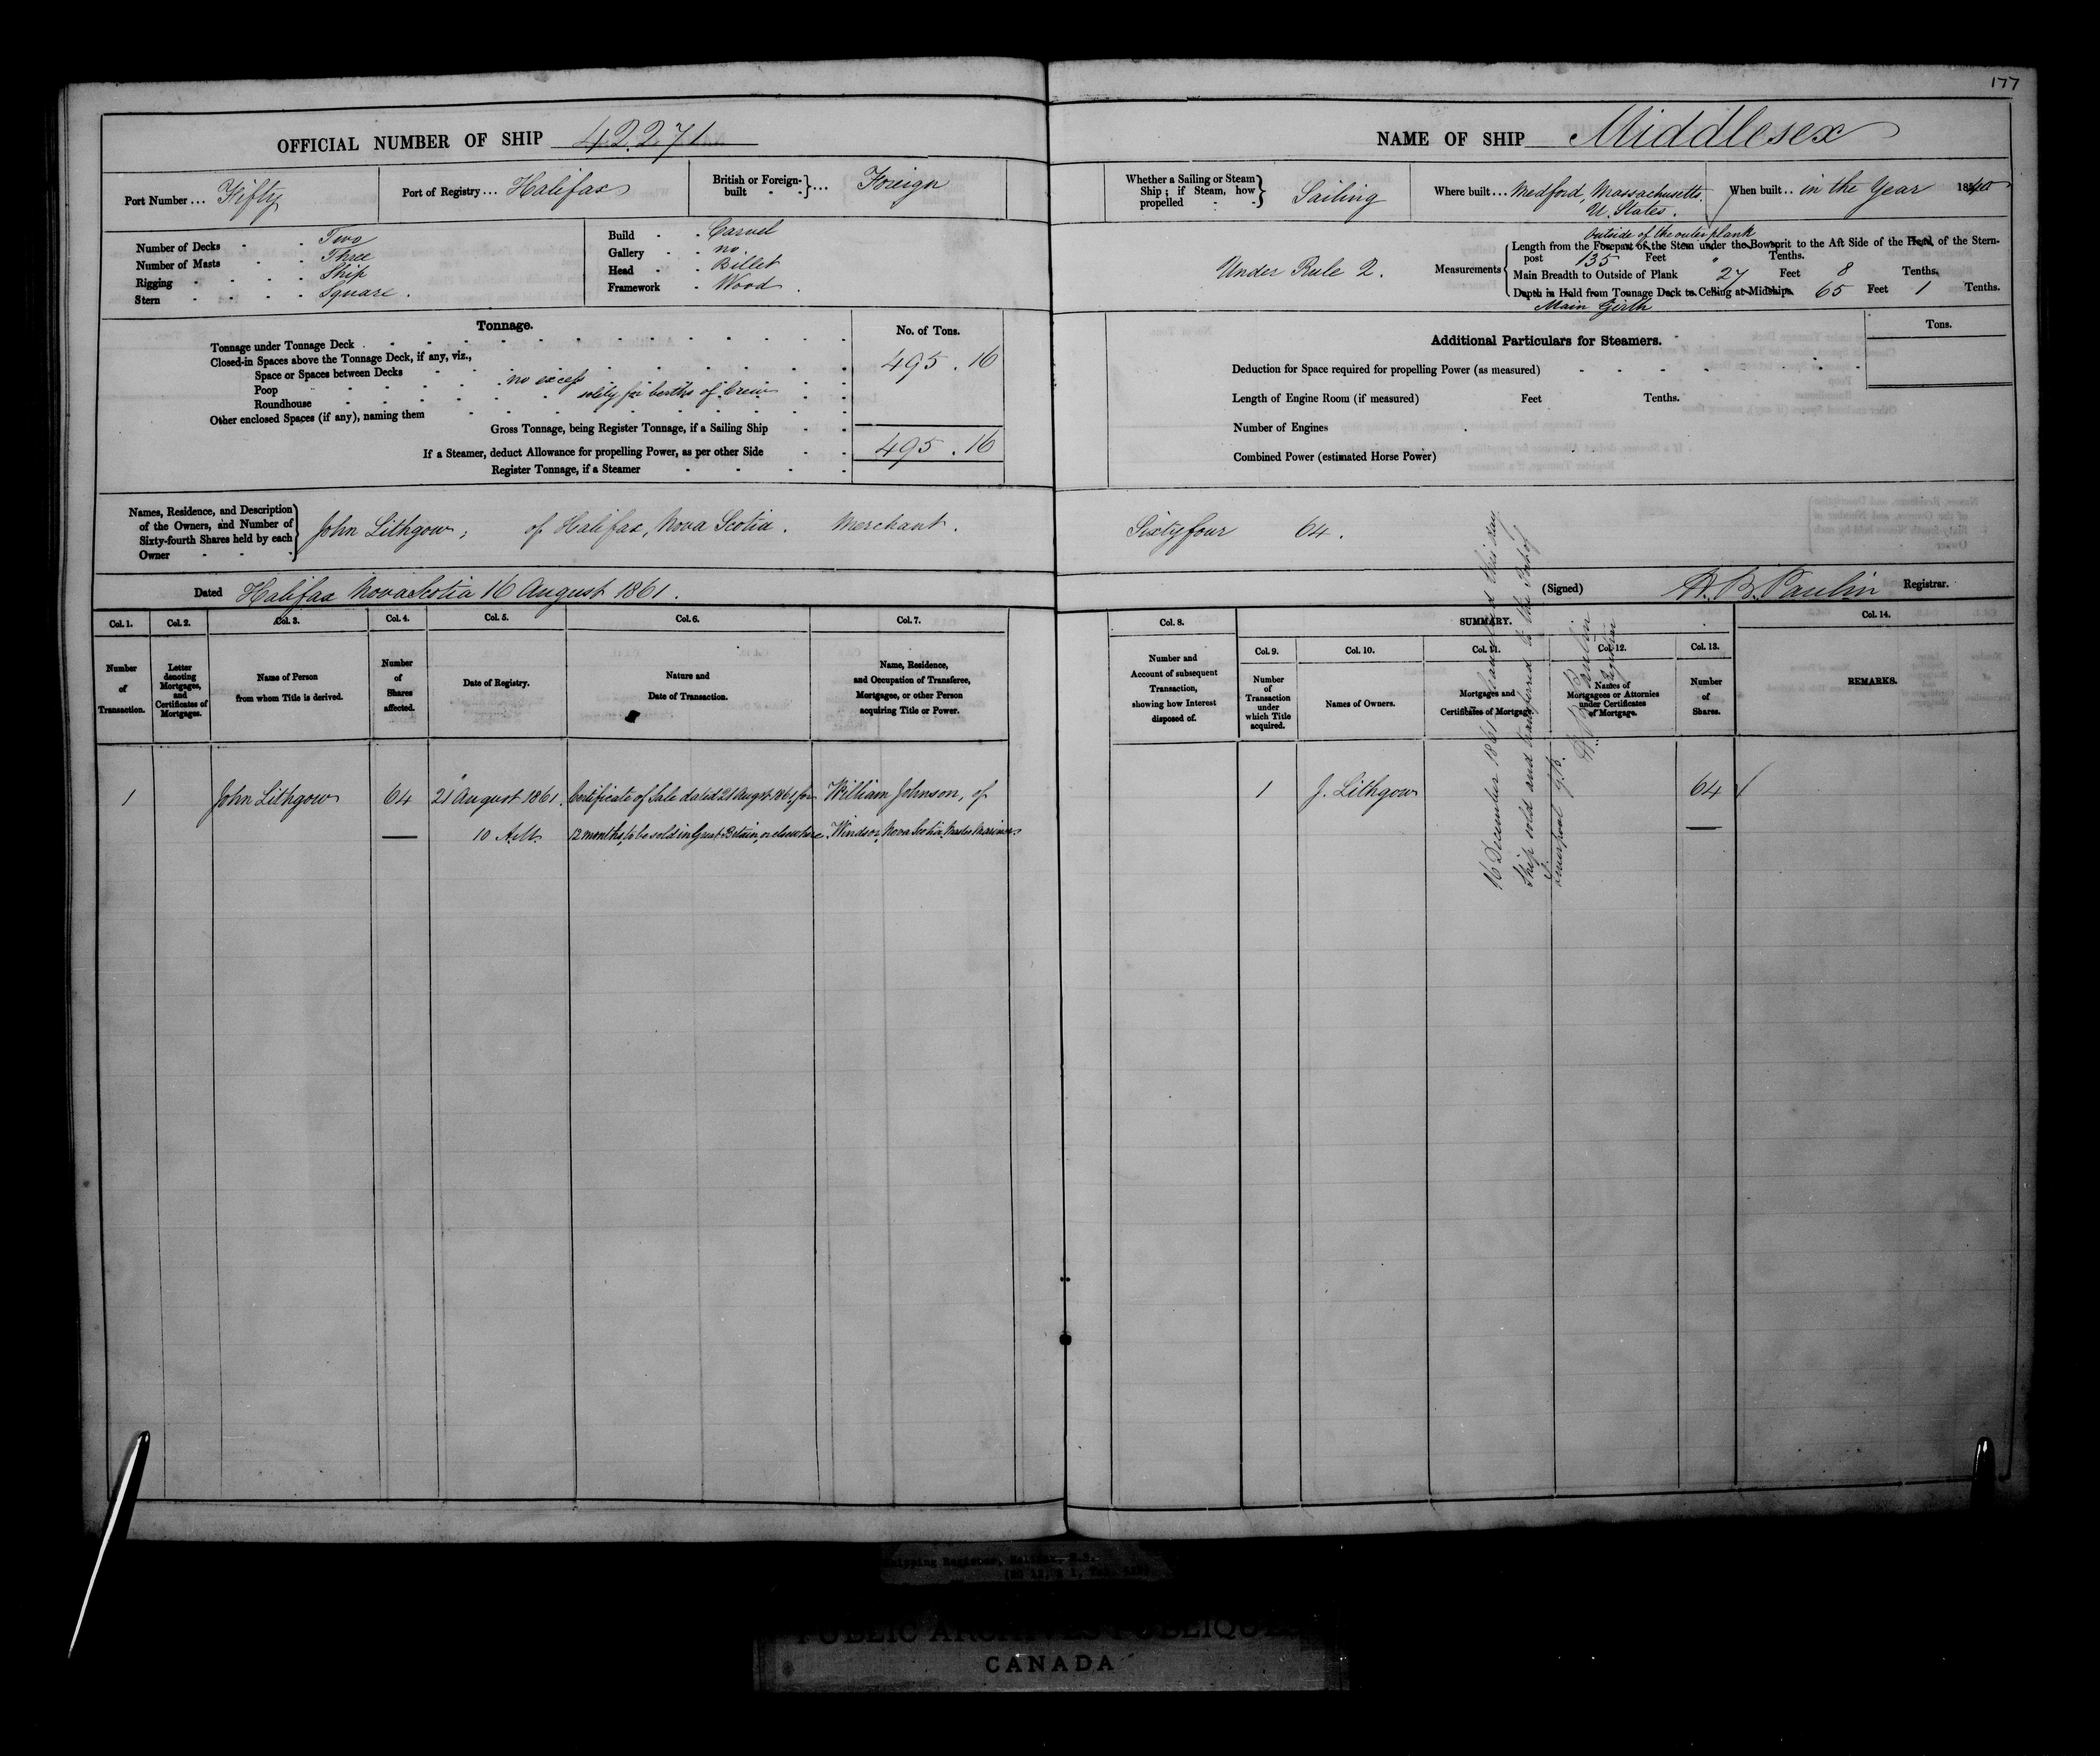 177
OFFICIAL NUMBER OF SHIP 42271
NAME OF SHIP Middlesex
Port Number ... Fifty
Port of Registry ... Halifax
British or Foreign-built ... Foreign
Whether a Sailing or Steam Ship; if Steam, how propelled Sailing
Where built ... Medford, Massachusetts, U. States.
When built .. in the Year 1840
Number of Decks Two
Number of Masts Three
Rigging Ship
Stern Square.
Build Carvel
Gallery no
Head Billet
Framework Wood.
Under Rule 2.
Measurements
Outside of the outer plank
Length from the Forepart of the Stem under the Bowsprit to the Aft Side of the Head of the Stern-
post 135 Feet " Tenths.
Main Breadth to Outside of Plank 27 Feet 8 Tenths.
Depth in Hold from Tonnage Deck to Ceiling at Midships 65 Feet 1 Tenths.
Main Girth
Tonnage.
No. of Tons.
Tonnage under Tonnage Deck 495.16
Closed-in Spaces above the Tonnage Deck, if any, viz.,
Space or Spaces between Decks
Poop no excess
Roundhouse solely for berths of Crew
Other enclosed Spaces (if any), naming them
Gross Tonnage, being Register Tonnage, if a Sailing Ship 495.16
If a Steamer, deduct Allowance for propelling Power, as per other Side
Register Tonnage, if a Steamer
Additional Particulars for Steamers.
Tons.
Deduction for Space required for propelling Power (as measured)
Length of Engine Room (if measured) Feet Tenths.
Number of Engines
Combined Power (estimated Horse Power)
Names, Residence, and Description
of the Owners, and Number of
Sixty-fourth Shares held by each
Owner
John Lithgow, of Halifax, Nova Scotia. Merchant. Sixty four 64.
Dated Halifax Nova Scotia 16 August 1861.
(Signed) H. B. Paulin Registrar.
Col. 1. Col. 2. Col. 3. Col. 4. Col. 5. Col. 6. Col. 7.
Number of Transaction.
Letter denoting Mortgages, and Certificates of Mortgages.
Name of Person from whom Title is derived.
Number of Shares affected.
Date of Registry.
Nature and Date of Transaction.
Name, Residence, and Occupation of Transferee, Mortgagee, or other Person acquiring Title or Power.
Col. 8. SUMMARY. Col. 14.
Col. 9. Col. 10. Col. 11. Col. 12. Col. 13.
Number and Account of subsequent Transaction, showing how Interest disposed of.
Number of Transaction under which Title acquired.
Names of Owners.
Mortgages and Certificates of Mortgage.
Names of Mortgagees or Attornies under Certificates of Mortgage.
Number of Shares.
REMARKS.
1 John Lithgow 64 21 August 1861. Certificate of Sale dated 21 Augst 1861, for William Johnson, of
10 AM. 12 months, to be sold in Great Britain, or elsewhere. Windsor, Nova Scotia, Master Mariner
1 J. Lithgow 64
16 December 1861 this day
Ship sold and transferred to the Port of
Liverpool G.B.
H. B. Paulin
Registrar
Shipping Register, Halifax, N.S.
PUBLIC ARCHIVES PUBLIQUES
CANADA